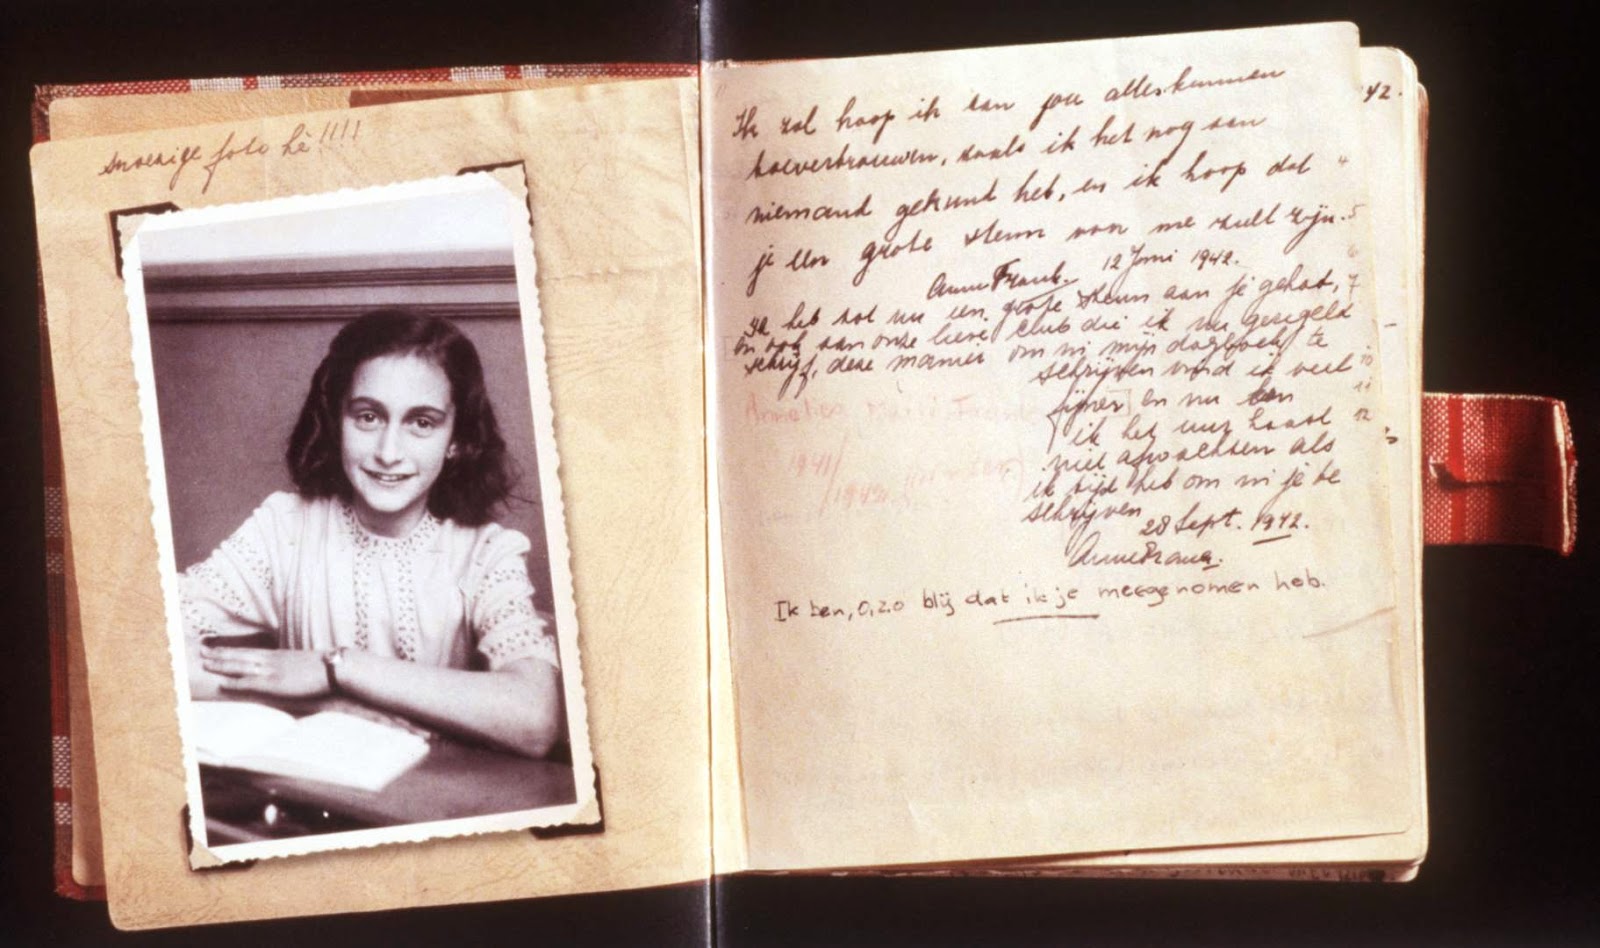 snoezige foto hè!!!!
42.
Ik zal hoop ik aan jou alles kunnen
toevertrouwen, zoals ik het nog aan
niemand gekund heb, en ik hoop dat
je een grote steun voor me zult zijn.
Anne Frank. 12 Juni 1942.
Ik heb tot nu een grote steun aan je gehad,
en ook aan onze lieve club die ik nu geregeld
schrijf, deze manier om in mijn dagboek te
schrijven vind ik veel
fijner en nu kan
ik het uur haast
niet afwachten als
ik tijd heb om in je te
schrijven
28 Sept. 1942.
Anne Frank.
Ik ben, O, zo blij dat ik je meegenomen heb.
4
5
6
7
10
11
12
Annelies Marie Frank
1941/
1942